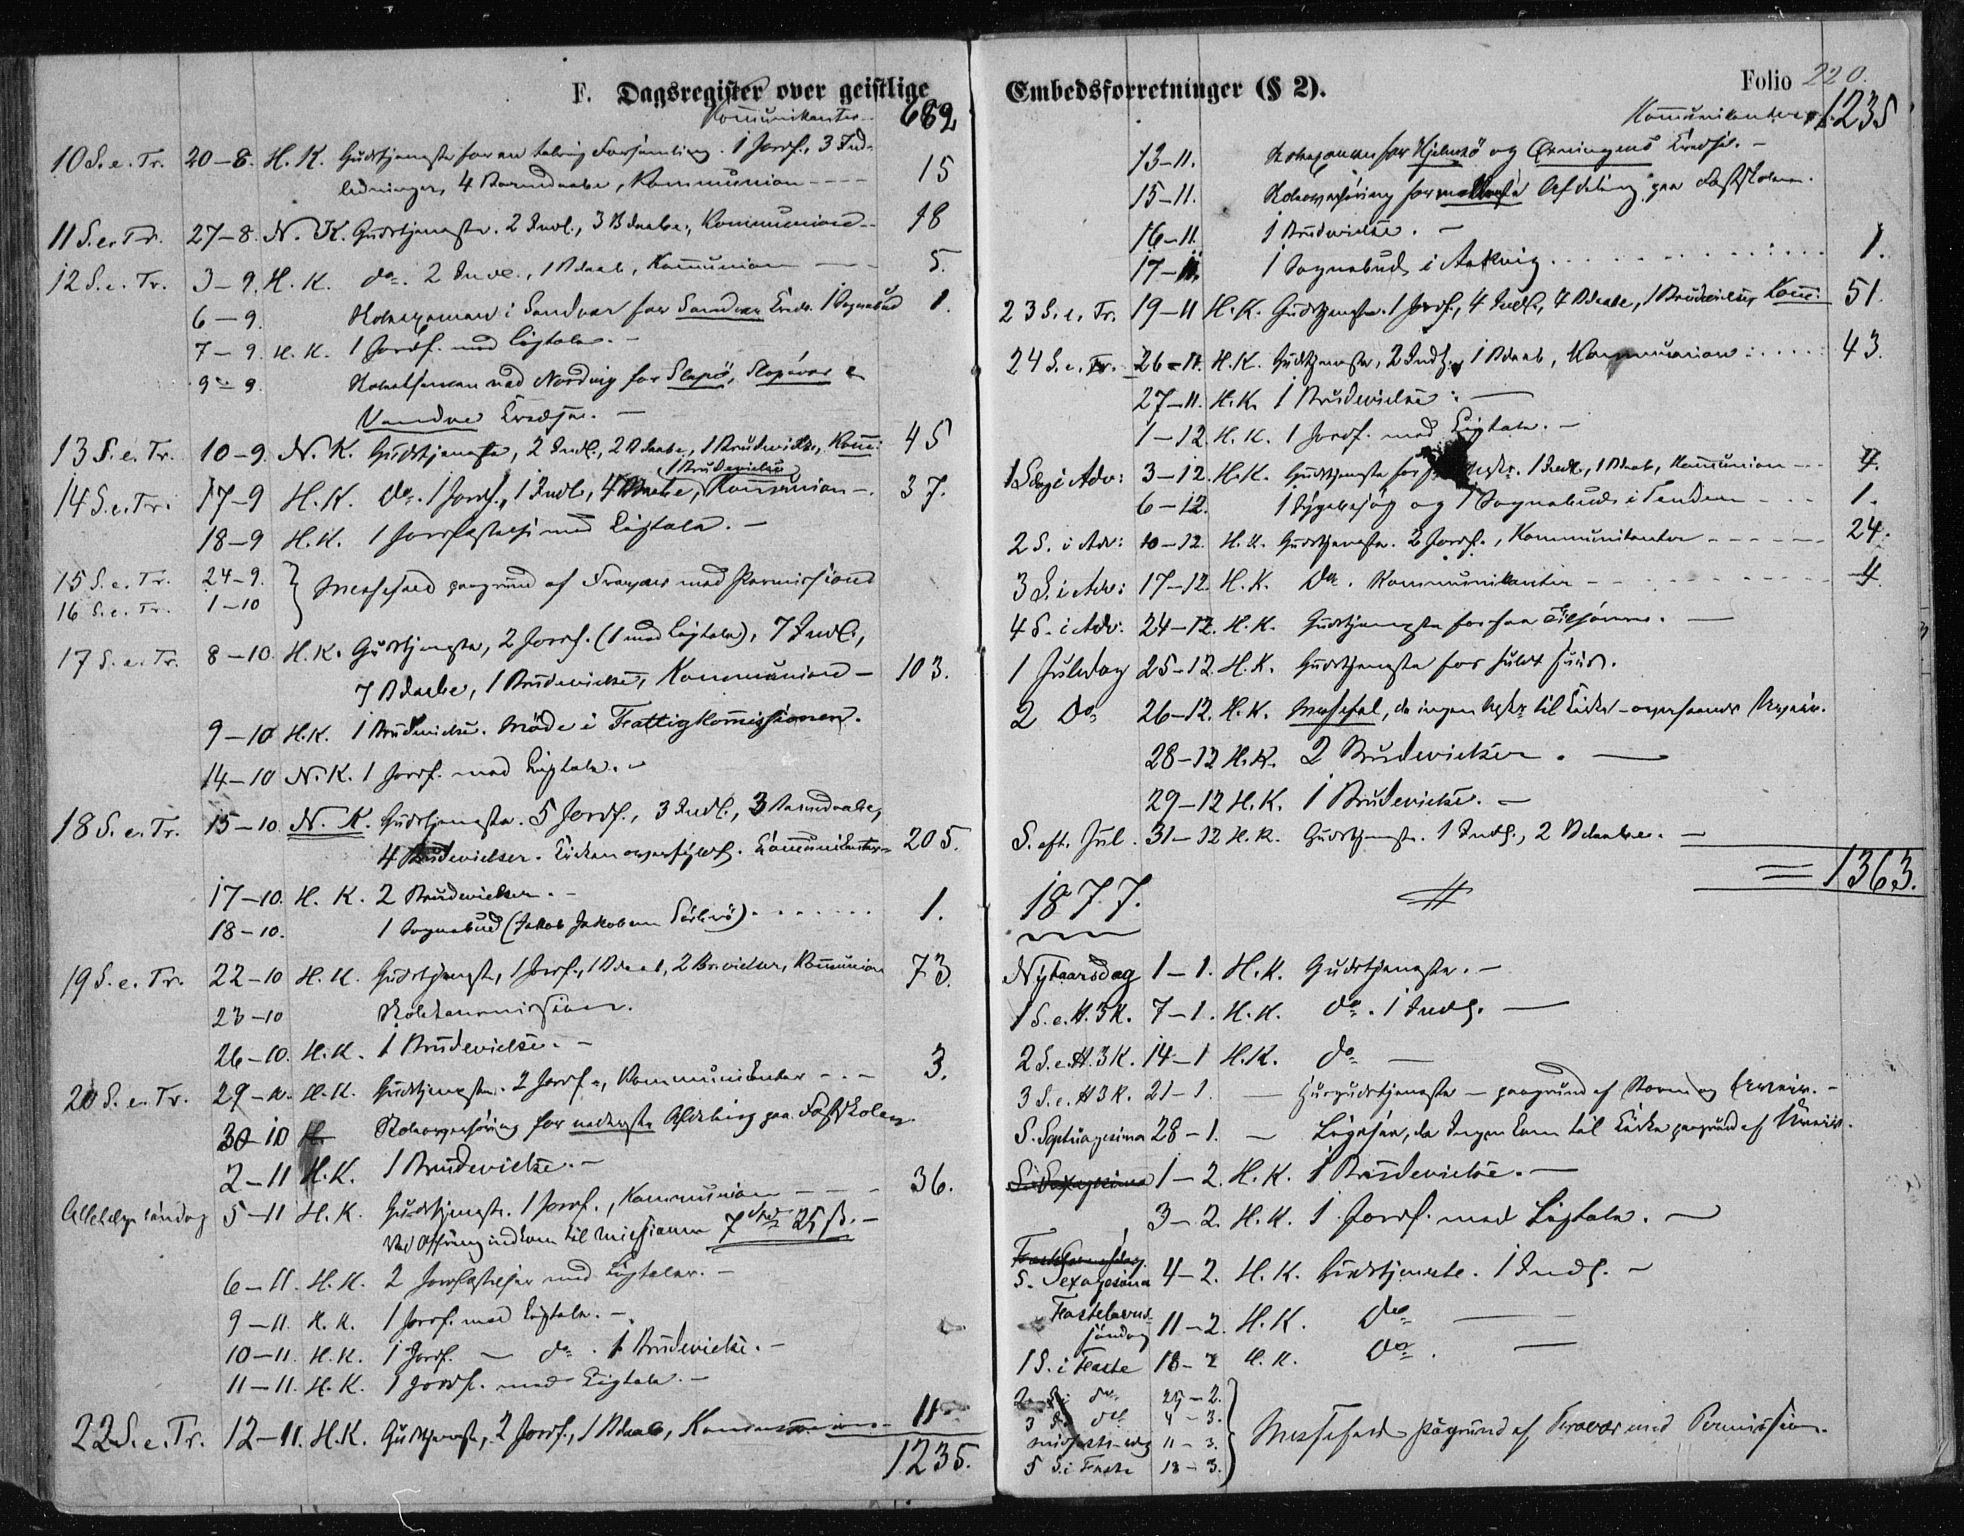 F. Dagsregister over geistlige
Kommunikanter 682
10 S. e. Tr. 20-8. H. K. Gudstjeneste for en talrig Forsamling. 1 Jordf., 3 Ind-
ledninger, 4 Barndaabe, Kommunion - - - - 15
11 S. e. Tr. 27-8. N. K. Gudstjeneste. 2 Indl., 3 B daabe, Kommunion - - 18
12 S. e. Tr. 3-9. H. K. do. 2 Indl., 1 Bdaab, Kommunion - - 5.
6-9. Skoleexamen i Sandvær for Sandvær Kreds. 1 Sognebud 1.
7-9. H. K. 1 Jordf. med Ligtale. -
9-9. Skoleexamen ved Nordvig for
Vandve Kredse. -
13 S. e. Tr. 10-9. N. K. Gudstjeneste, 2 Indl., 2 Bdaabe, 1 Brudevielse, Komm: 45
1 Brudevielse
14 S. e. Tr. 17-9 H. K. do. 1 Jordf., 1 Indl., 4 Bdaabe, Kommunion -. 37.
18-9 H. K. 1 Jordfæstelse med Ligtale. -
15 S. e. Tr. 24-9. } Messefald paagrund af Fravær med Permission
16 S. e. Tr. 1-10
17 S. e. Tr. 8-10. H. K. Gudstjeneste, 2 Jordf. (1 med Ligtale), 7 Indl.,
7 Bdaabe, 1 Brudevielse, Kommunion - 103.
9-10 H. K. 1 Brudevielse. Möde i Fattigkommissionen.
14-10 N. K. 1 Jordf. med Ligtale. -
18 S. e. Tr. 15-10. N. K. Gudstjeneste. 5 Jordf., 3 Indl., 3 Barndaabe,
4 Brudevielser. Kirken overfyldt. Kommunikanter - 205.
17-10. H. K. 2 Brudevielser. -
18-10. 1 Sognebud (Jakob Jakobsen ) . . . . . . 1.
19 S. e. Tr. 22-10 H. K. Gudstjeneste, 1 Jordf., 1 Bdaab, 2 Br.vielser, Kommunion 73.
23-10 Skolekommission.
26-10. H. K. 1 Brudevielse. -
20 S. e. Tr. 29-10. H. K. Gudstjeneste. 2 Jordf., Kommunikanter - - - 3.
30-10 Skoleexamen for nederste Afdeling paa Fastskolen
2-11 H. K. 1 Brudevielse. -
Allehelgenssöndag 5-11 H. K. Gudstjeneste. 1 Jordf., Kommunion - - - 36.
Ved Offring indkom til Missionen 7 Spd 25 ß. -
6-11. H. K. 2 Jordfæstelser med Ligtaler. -
9-11. H. K. 1 Jordf. med Ligtale. -
10-11. H. K. 1 Jordf. - do. 1 Brudevielse. -
11-11. H. K. 1 Jordf. med Ligtale. -
22 S. e. Tr. 12-11. H. K. Gudstjeneste, 2 Jordf., 1 Bdaab, Kommunion - 11.
1235.
Embedsforretninger (§ 2).
Folio 220.
Kommunikanter 1235
13-11. Skoleexamen for Hjelmsö og Oxningens Kredse. -
15-11. Skoleexamen for Afdeling paa Fastskolen.
16-11. 1 Brudevielse. -
17-11. 1 Sognebud i . . . . . . . . 1.
23 S. e. Tr. 19-11 H. K. Gudstjeneste. 1 Jordf., 4 Indl., 4 Bdaabe, 1 Brudevielse, Komm: 51.
24 S. e. Tr. 26-11. H. K. Gudstjeneste, 2 Indl., 1 Bdaab, Kommunion . . . . 43.
27-11. H. K. 1 Brudevielse. -
1-12. H. K. 1 Jordf. med Ligtale. -
1 Sög i Adv: 3-12. H. K. Gudstjeneste for . 1 Indl., 1 Bdaab, Kommunion - - - 4.
6-12. 1 Sygebesög og 1 Sognebud i - - - 1.
2 S. i Adv: 10-12. H. K. Gudstjeneste. 2 Jordf., Kommunikanter - - - - - 24.
3 S. i Adv: 17-12. H. K. do. Kommunikanter - - - - - - 4.
4 S. i Adv: 24-12. H. K. Gudstjeneste for faa Tilhörere. -
1 Juledag 25-12 H. K. Gudstjeneste for fuldt Huus.
2 do 26-12. H. K. Messefald, da ingen kom til Kirke - overhaands Uveir.
28-12 H. K. 2 Brudevielser. -
29-12 H. K. 1 Brudevielse. -
S. eft. Jul. 31-12 H. K. Gudstjeneste. 1 Indl., 2 Bdaabe. -
= 1363.
1877.
Nytaarsdag 1-1. H. K. Gudstjeneste. -
1 S. e. H. 3 K. 7-1. H. K. do. 1 Indl. -
2 S. e. H. 3 K. 14-1 H. K. do -
3 S. e. H 3 K. 21-1. - Husgudstjeneste - paagrund af Storm og Uveir. -
S. Septuagesima 28-1. - Ligesaa, da Ingen kom til Kirke paagrund af Uveir.
S. Sexagesima 1-2. H. K. 1 Brudevielse. -
3-2. H. K. 1 Jordf. med Ligtale. -
Fastelavnssöndag
S. Sexagesima 4-2. H. K. Gudstjeneste. 1 Indl. -
Fastelavns-
söndag 11-2. H. K. do -
1 S. i Faste 18-2 H. K. do. -
2 S. i do 25-2.
3 S. do 4-3.
Midfaste-sög 11-3.
5 S. i Faste 18-3. } Messefald paagrund af Fravær med Permission.